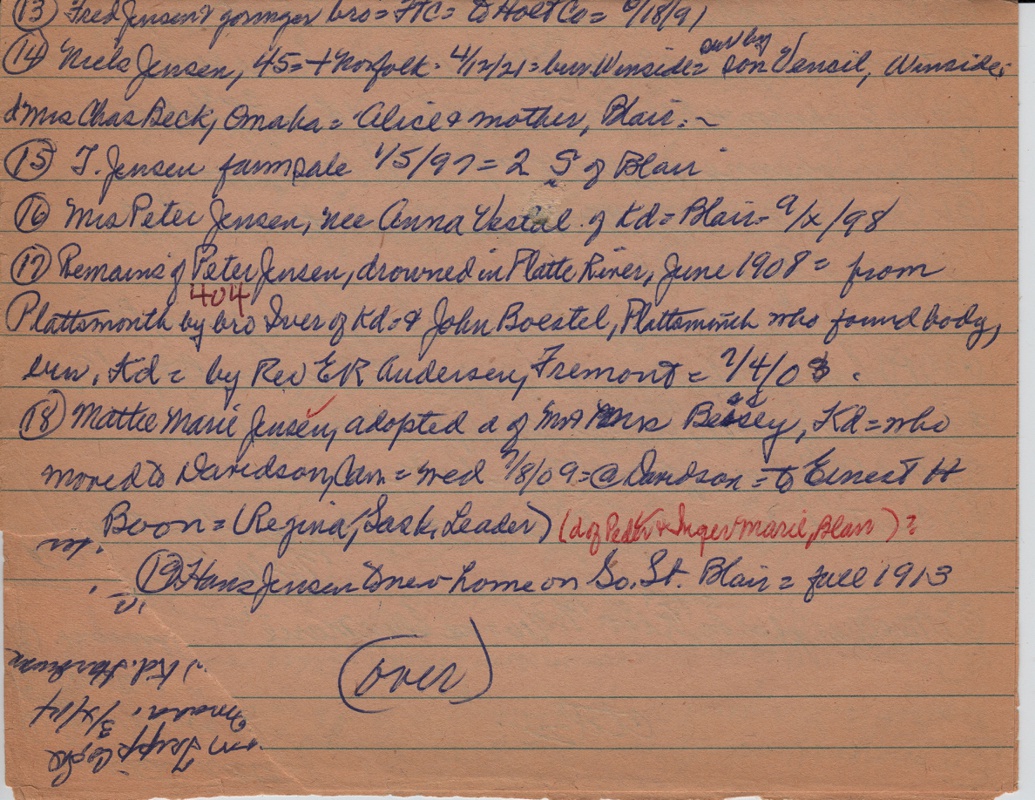 (13) Fred Jensen & younger bro = FTC = to Holt Co = 9/18/91
(14) Niels Jensen, 45 = + Norfolk = 4/12/21 = bur Winside = sur by son Vencil, Winside,
d Mrs Chas Beck, Omaha = Alice & mother, Blair. ~
(15) T. Jensen farm sale 1/5/97 = 2 S of Blair
(16) Mrs Peter Jensen, nee Anna Vestal of Kd = Blair = 9/x/98
(17) Remains of Peter Jensen, drowned in Platte River, June 1908 = from
404
Plattsmouth by bro Iver of Kd & John Boestel, Plattsmouth who found body,
bur, Kd = by Rev ER Andersen, Fremont = 7/4/08.
(18) Mattie Marie Jensen, adopted d of Mr & Mrs Bessey, Kd = who
moved to Davidson, Can. = wed 9/8/09 = @ Davidson = to Ernest H
Boon = (Regina, Sask, Leader) (d of Peter & Inger Marie, Blair) =
(19) Hans Jensen to new home on So. St. Blair = fall 1913
(over)
Kd.
Omaha. 3/x/14
Tripp Co,